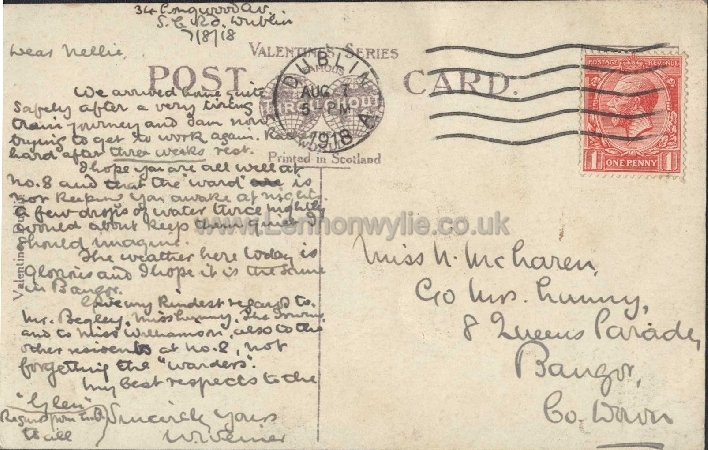 34 Longwood Av.
S.C Rd. Dublin
7/8/18
Dear Nellie,
We arrived home quite
safely after a very tiring
train journey and I am now
trying to get to work again.
hard after three weeks rest.
I hope you are all well at
No. 8 and that the "ward" is
not keeping you awake at night.
A few drops of water twice nightly
would about keep them quiet I
should imagine.
The weather here today is
Glorious and I hope it is the same
in Bangor.
Give my kindest regards to
Mr. Begley, Miss Lunny, The
and to Miss Williamson, also to the
other residents at No. 8, not
forgetting the "warders".
My best respects to the
"Glen"
Regards from
to all
Sincerely Yours
VALENTINE'S SERIES
POST CARD.
FAMOUS
THROUGHOUT
WORLD
Printed in Scotland
Valentines
DUBLIN
AUG 7
5 PM
1918
A
POSTAGE REVENUE
1 ONE PENNY 1
www.Lennonwylie.co.uk
Miss N. McLaren,
C/o Mrs. Lunny,
8 Queens Parade,
Bangor,
Co. Down